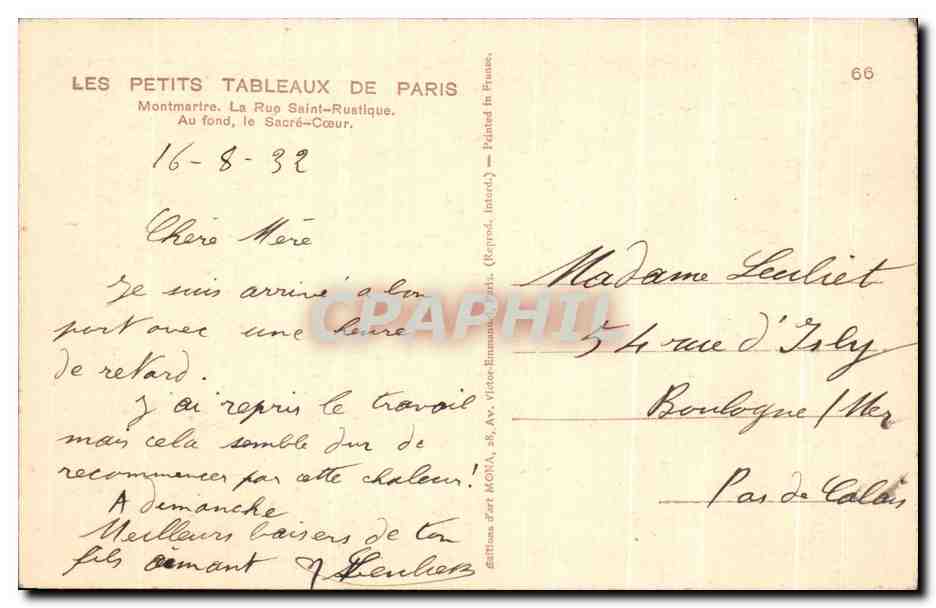 LES PETITS TABLEAUX DE PARIS
Montmartre. La Rue Saint-Rustique.
Au fond, le Sacré-Cœur.
16-8-32
Chère Mère
Je suis arrivé a bon
port avec une heure
de retard.
J'ai repris le travail
mais cela semble dur de
recommencer par cette chaleur!
A dimanche
Meilleurs baisers de ton
fils aimant
Editions d'art MONA, 28, Av. Victor-Emmanuel, Paris. (Reprod. interd.) — Printed in France.
66
Madame Leuliet
54 rue d'Isly
Boulogne / Mer
Pas de Calais
CPAPHIL